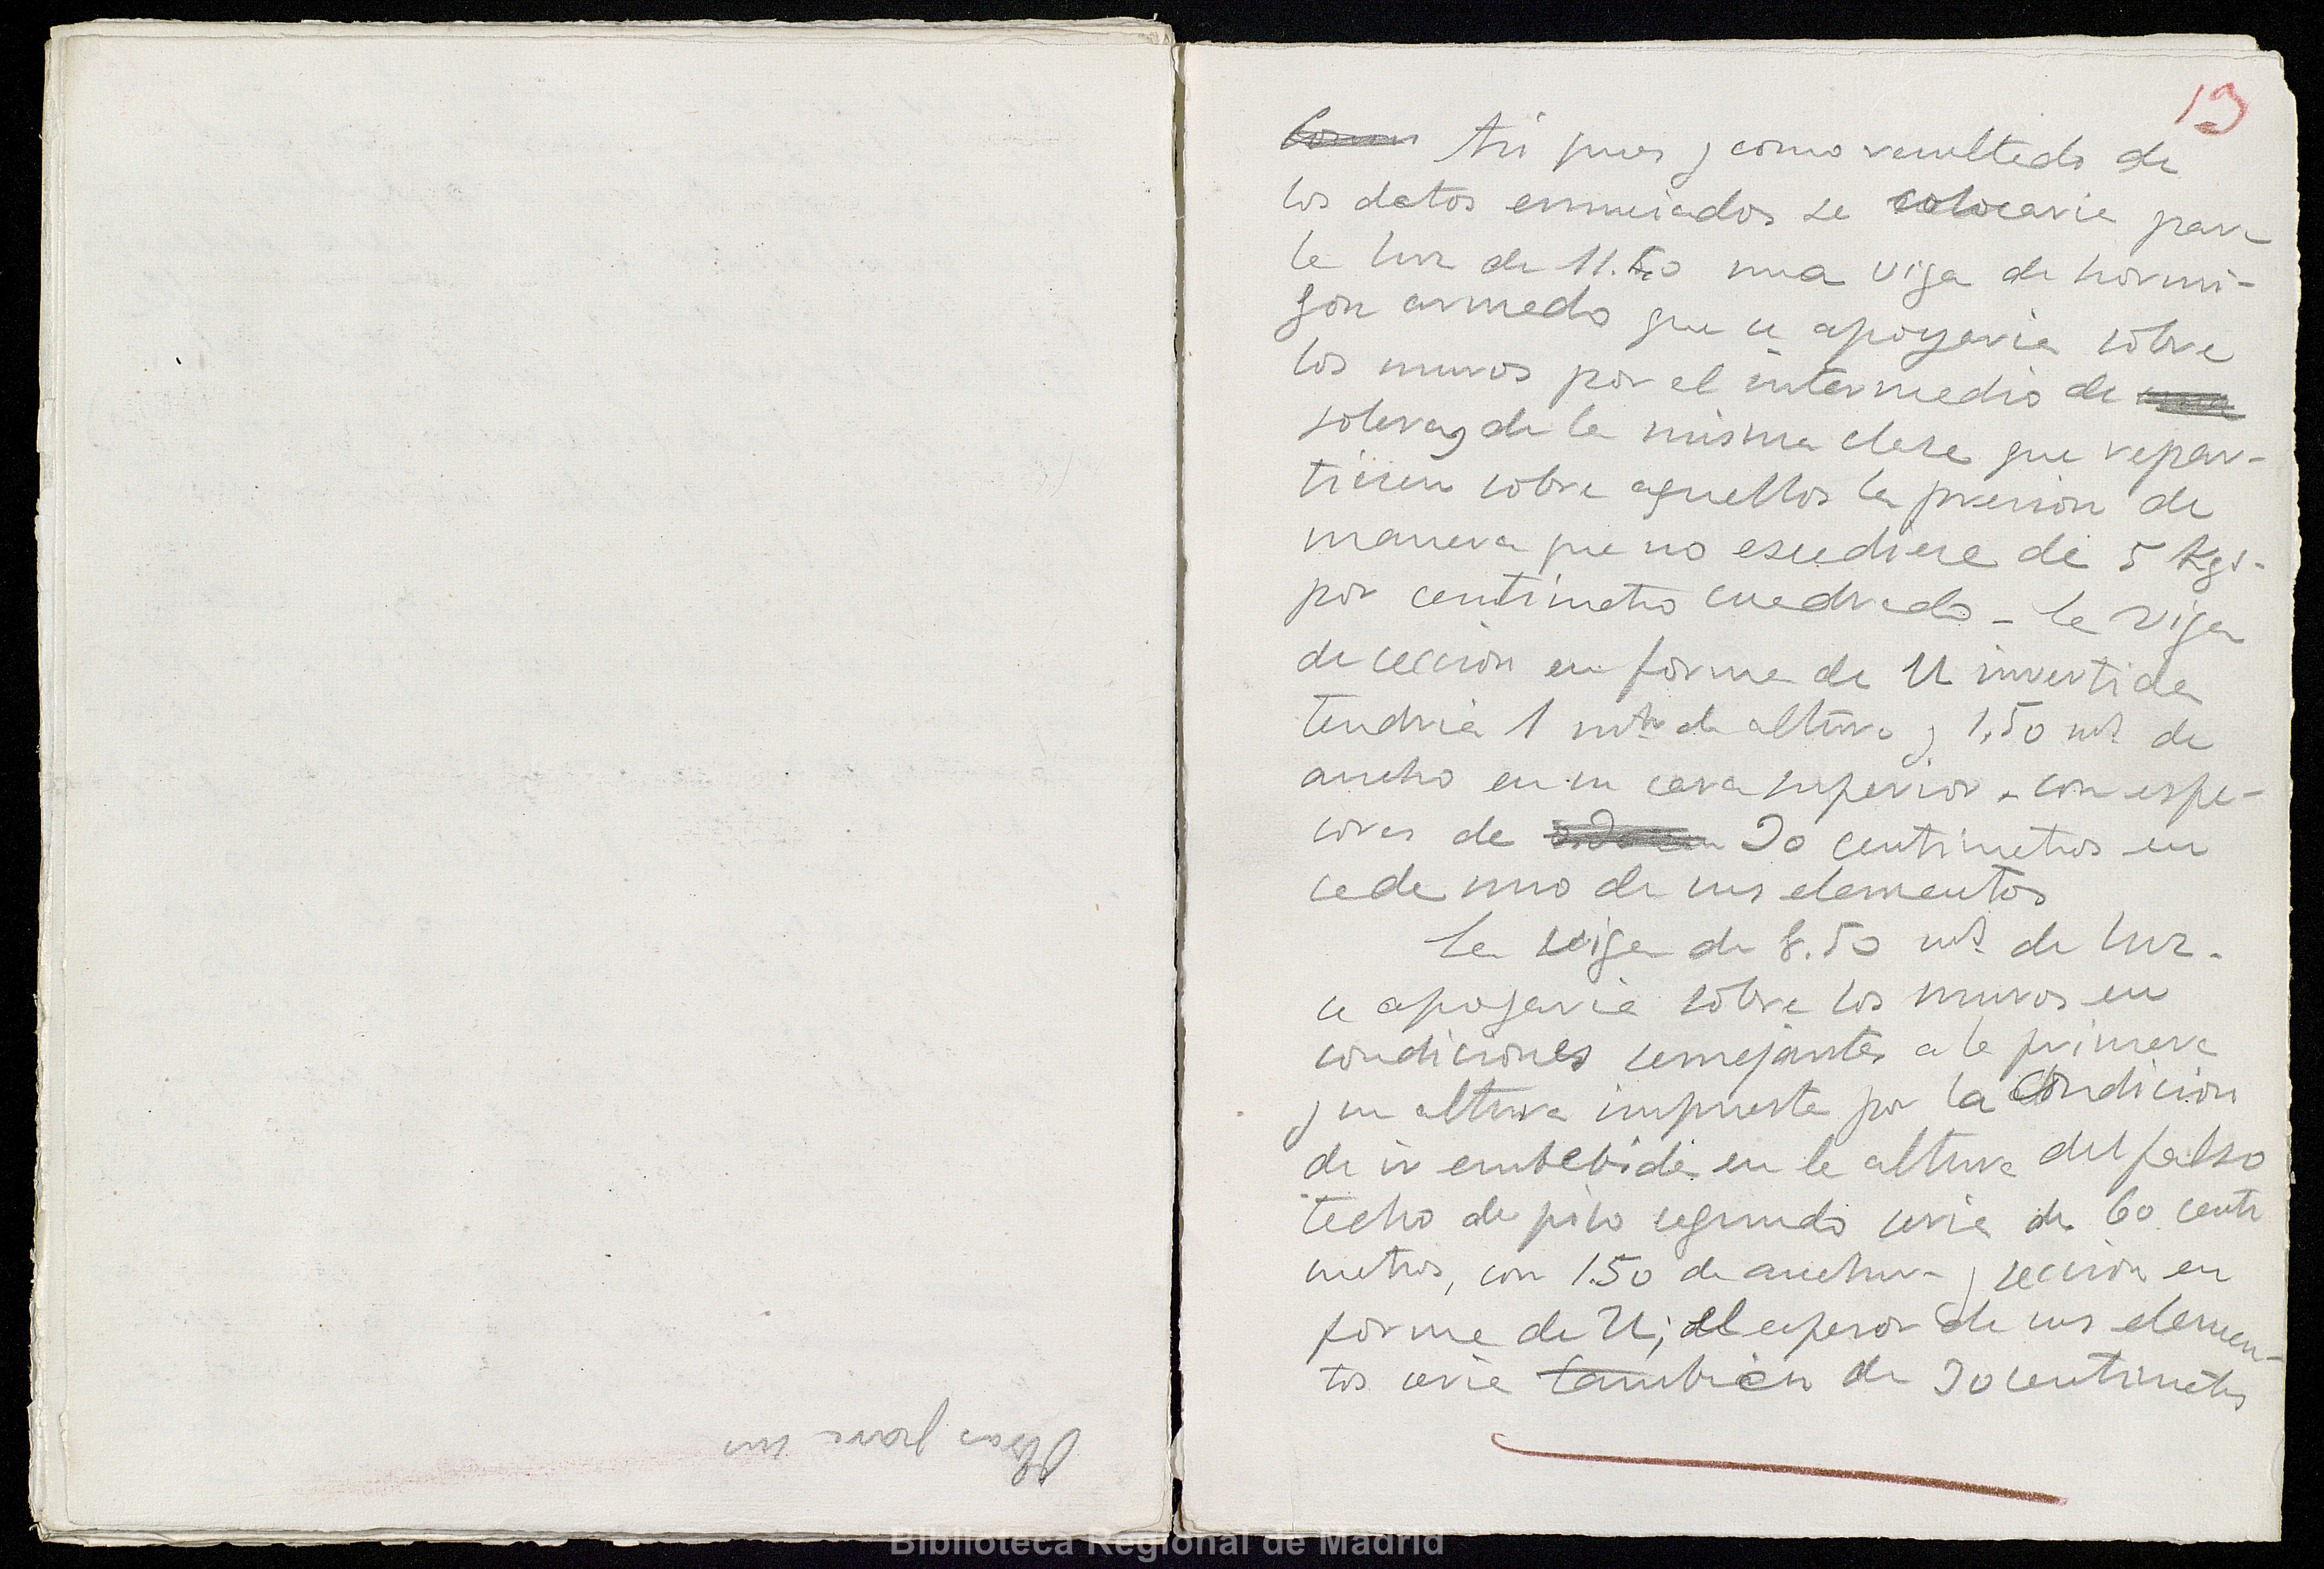 Obras para un
19
Como Asi pues y como resultado de
los datos enunciados se colocaria para
la luz de 11.50 una viga de hormi-
gon armado que se apoyaria sobre
los muros por el intermedio de
soleras de la misma clase que repar-
tiesen sobre aquellos la presion de
manera que no escediese de 5 Kgs.
por centimetro cuadrado - La viga
de seccion en forma de U invertida
tendria 1 mtr de altura y 1,50 mts de
ancho en su cara superior - con espe-
sores de 20 centimetros en
cada uno de sus elementos
La viga de 8.50 mts de luz -
se apoyaria sobre los muros en
condiciones semejantes a la primera
y su altura impuesta por la condicion
de ir embebida en la altura del falso
techo de piso segundo seria de 60 centi
metros, con 1.50 de anchura y seccion en
forma de U; el espesor de sus elemen-
tos seria tambien de 20 centimetros
Biblioteca Regional de Madrid